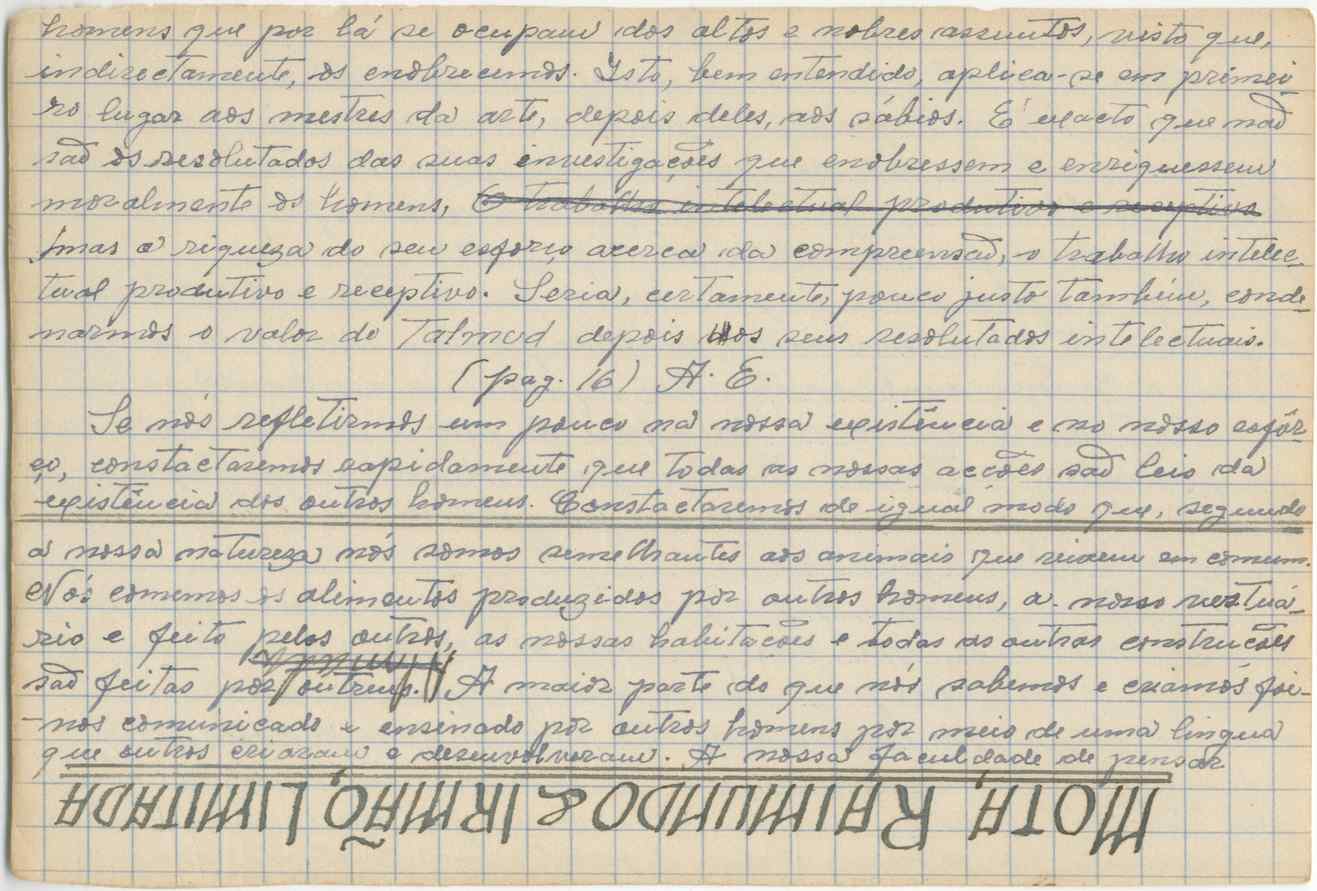 homens que por lá se ocupam dos altos e nobres assuntos, visto que,
indirectamente, os enobrecemos. Isto, bem entendido, aplica-se em primei-
ro lugar aos mestres da arte, depois deles, aos sábios. É exacto que não
são os resolutados das suas investigações que enobressem e enriquessem
moralmente os homens, O trabalho intelectual produtivo e receptivo
mas a riqueza do seu esforço acerca da compreensão, o trabalho intelec-
tual produtivo e receptivo. Seria, certamente, pouco justo também, conde-
narmos o valor do Talmud depois dos seus resolutados intelectuais.
(pag. 16) A. E.
Se nós refletirmos um pouco na nossa existência e no nosso esfôr-
ço, constactaremos rapidamente que todas as nossas acções são leis da
existência dos outros homens. Constactaremos de igual modo que, segundo
a nossa natureza nós somos semelhantes aos animais que vivem em comum.
Nós comemos os alimentos produzidos por outros homens, a nosso vestuá-
rio e feito pelos outros, as nossas habitacões e todas as outras construcões
são feitas por outrens. A maior parte do que nós sabemos e criamos foi-
-nos comunicado e ensinado por outros homens por meio de uma lingua
que outros criaram e desenvolveram. A nossa faculdade de pensar
MOTA, RAIMUNDO & IRMÃO, LIMITADA